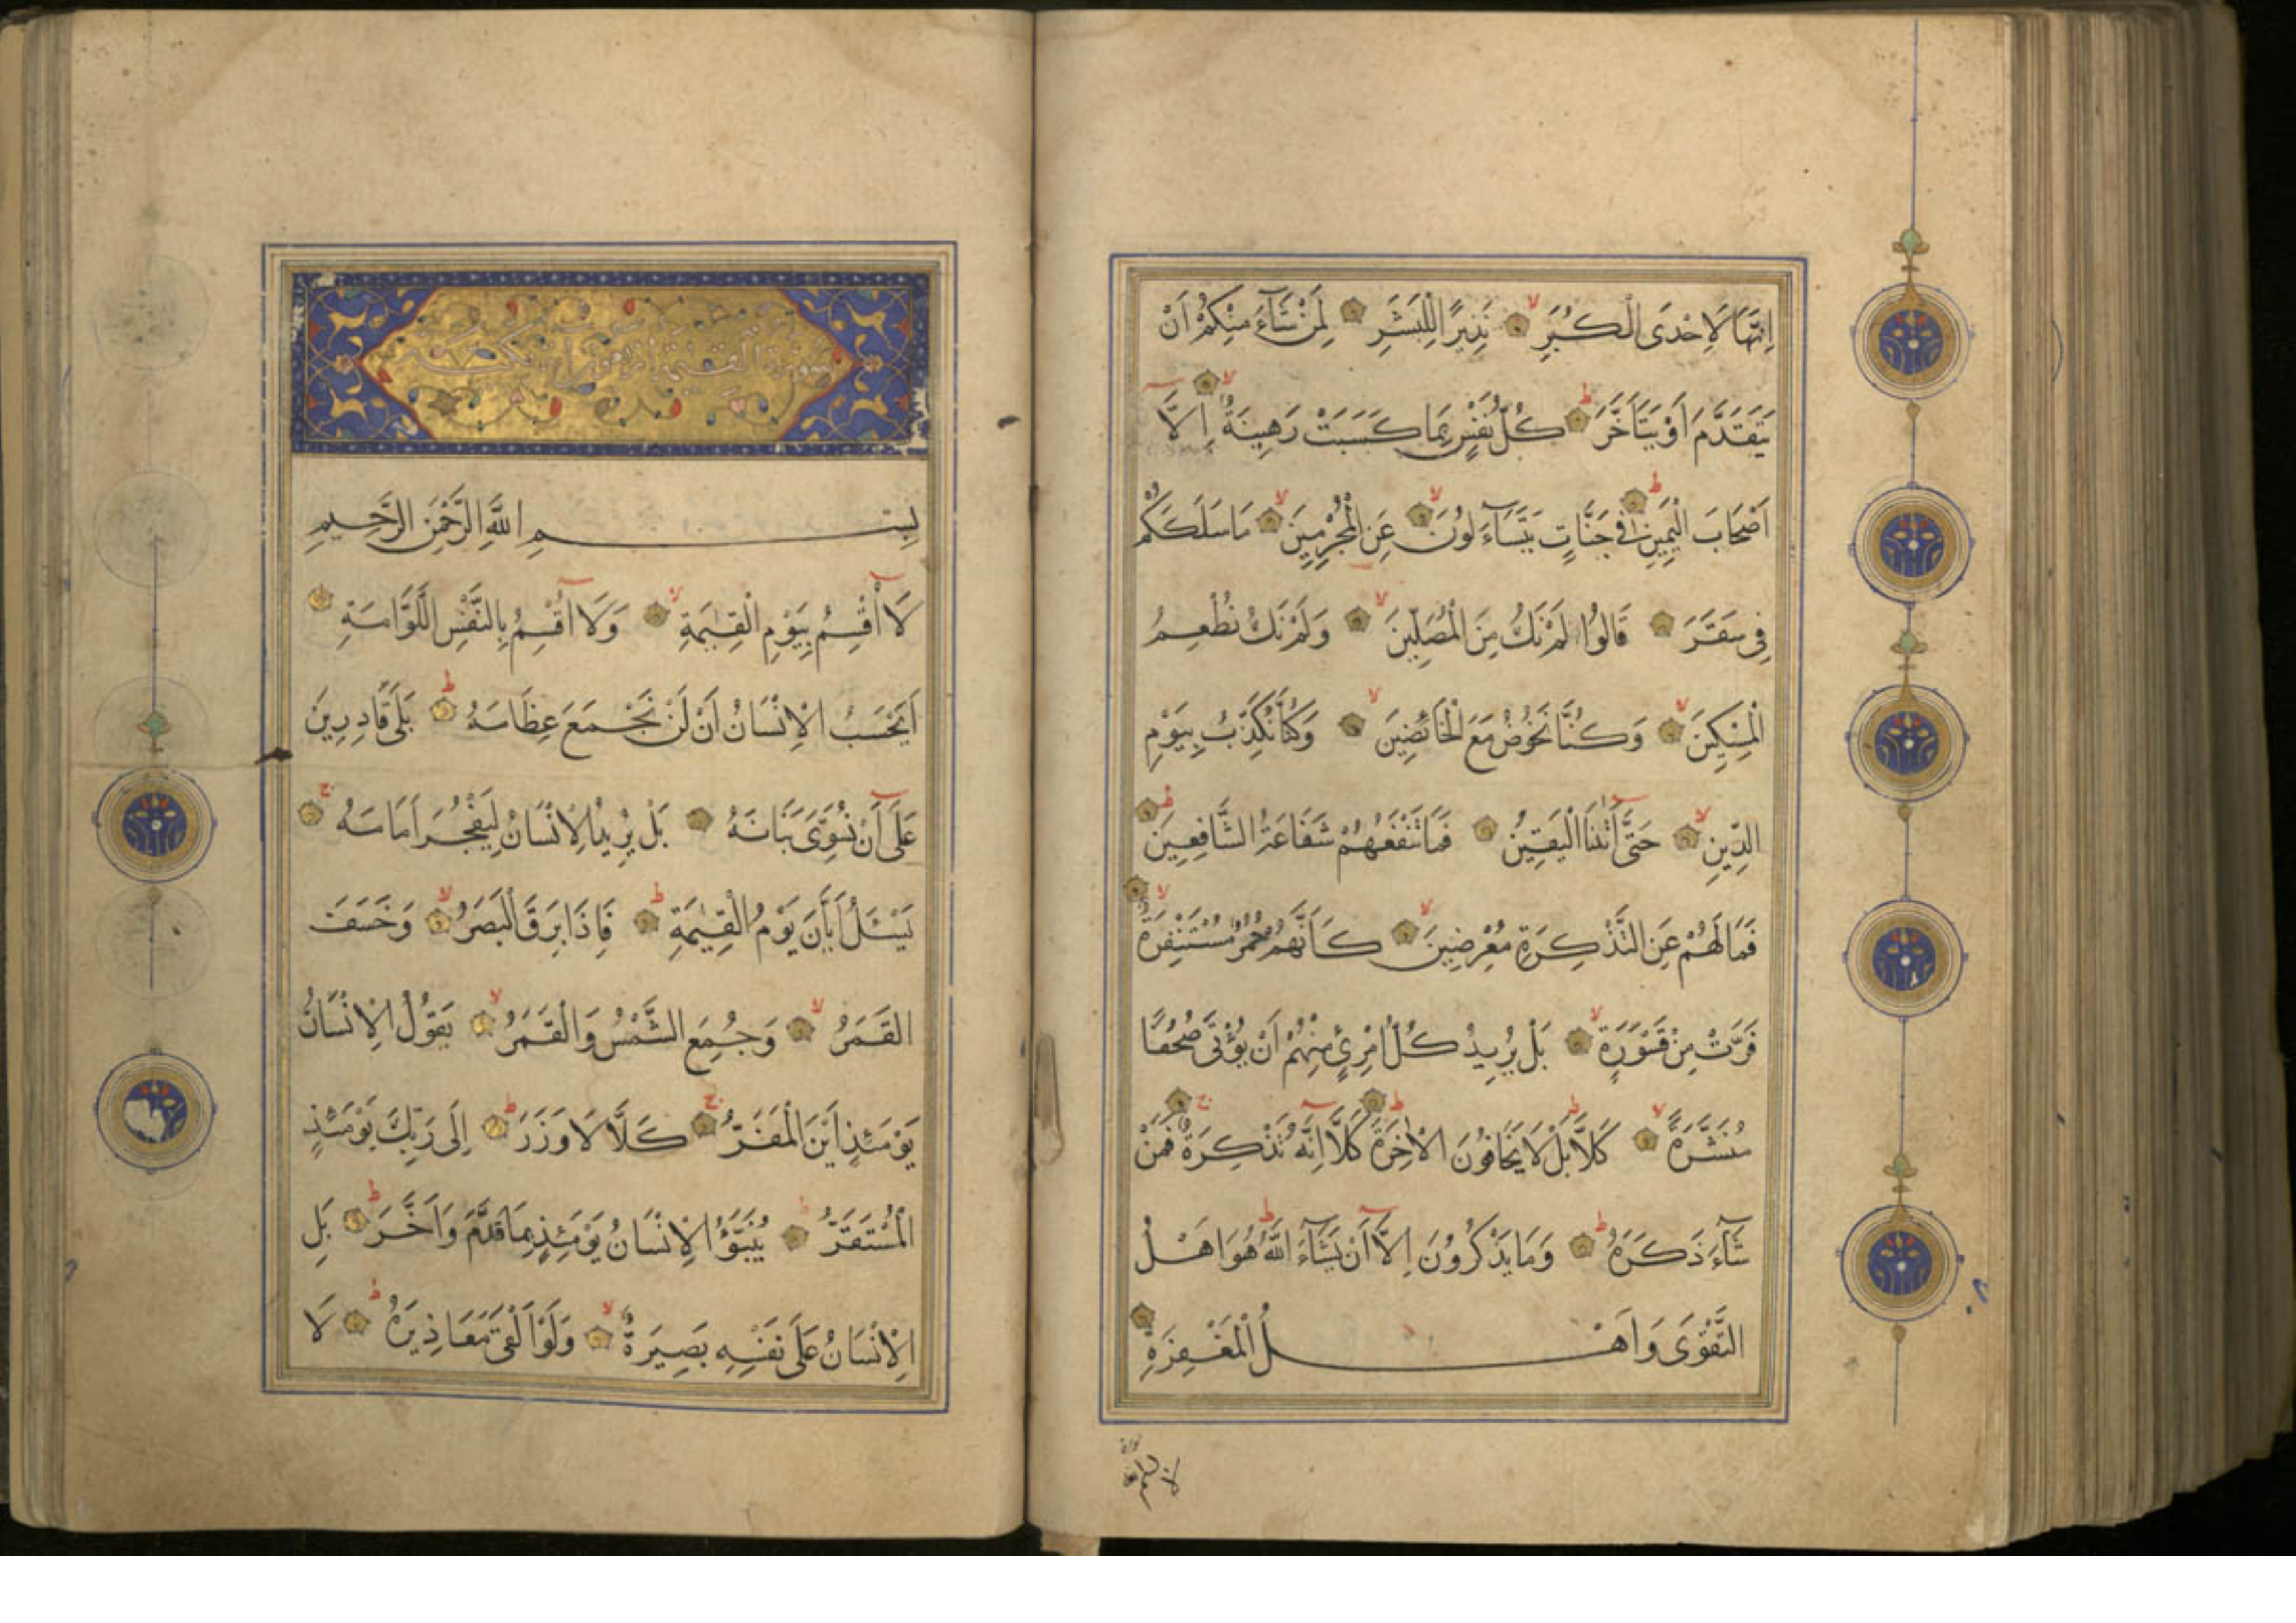 اِنَّهَا لَاِحْدَى الْكُبَرِ لا نَذِيرًا لِلْبَشَرِ لِمَنْ شَآءَ مِنْكُمْ اَنْ
يَتَقَدَّمَ اَوْ يَتَاَخَّرَ ط كُلُّ نَفْسٍ بِمَا كَسَبَتْ رَهِينَةٌ لا اِلَّا
اَصْحَابَ الْيَمِينِ ط فِى جَنَّاتٍ يَتَسَآءَلُونَ لا عَنِ الْمُجْرِمِينَ لا مَا سَلَكَكُمْ
فِى سَقَرَ قَالُوا لَمْ نَكُ مِنَ الْمُصَلِّينَ لا وَلَمْ نَكُ نُطْعِمُ
الْمِسْكِينَ لا وَكُنَّا نَخُوضُ مَعَ الْخَائِضِينَ لا وَكُنَّا نُكَذِّبُ بِيَوْمِ
الدِّينِ لا حَتَّى اَتٰنَا الْيَقِينُ فَمَا تَنْفَعُهُمْ شَفَاعَةُ الشَّافِعِينَ ط
فَمَا لَهُمْ عَنِ التَّذْكِرَةِ مُعْرِضِينَ لا كَاَنَّهُمْ حُمُرٌ مُسْتَنْفِرَةٌ لا
فَرَّتْ مِنْ قَسْوَرَةٍ لا بَلْ يُرِيدُ كُلُّ امْرِئٍ مِنْهُمْ اَنْ يُؤْتَى صُحُفًا
مُنَشَّرَةً لا كَلَّا ط بَلْ لَا يَخَافُونَ الْاٰخِرَةَ ط كَلَّا اِنَّهُ تَذْكِرَةٌ ج فَمَنْ
شَآءَ ذَكَرَهُ ط وَمَا يَذْكُرُونَ اِلَّا اَنْ يَشَآءَ اللّٰهُ ط هُوَ اَهْلُ
التَّقْوَى وَاَهْلُ الْمَغْفِرَةِ
بِسْمِ اللَّهِ الرَّحْمٰنِ الرَّحِيمِ
لَا اُقْسِمُ بِيَوْمِ الْقِيٰمَةِ لا وَلَا اُقْسِمُ بِالنَّفْسِ اللَّوَّامَةِ ط
اَيَحْسَبُ الْاِنْسَانُ اَنْ لَنْ نَجْمَعَ عِظَامَهُ ط بَلَى قَادِرِينَ
عَلَى اَنْ نُسَوِّىَ بَنَانَهُ بَلْ يُرِيدُ الْاِنْسَانُ لِيَفْجُرَ اَمَامَهُ ج
يَسْـَٔلُ اَيَّانَ يَوْمُ الْقِيٰمَةِ ط فَاِذَا بَرِقَ الْبَصَرُ لا وَخَسَفَ
الْقَمَرُ لا وَجُمِعَ الشَّمْسُ وَالْقَمَرُ لا يَقُولُ الْاِنْسَانُ
يَوْمَئِذٍ اَيْنَ الْمَفَرُّ ج كَلَّا لَا وَزَرَ ط اِلَى رَبِّكَ يَوْمَئِذٍ
الْمُسْتَقَرُّ ط يُنَبَّؤُا الْاِنْسَانُ يَوْمَئِذٍ بِمَا قَدَّمَ وَاَخَّرَ ط بَلِ
الْاِنْسَانُ عَلَى نَفْسِهِ بَصِيرَةٌ لا وَلَوْ اَلْقَى مَعَاذِيرَهُ ط لَا